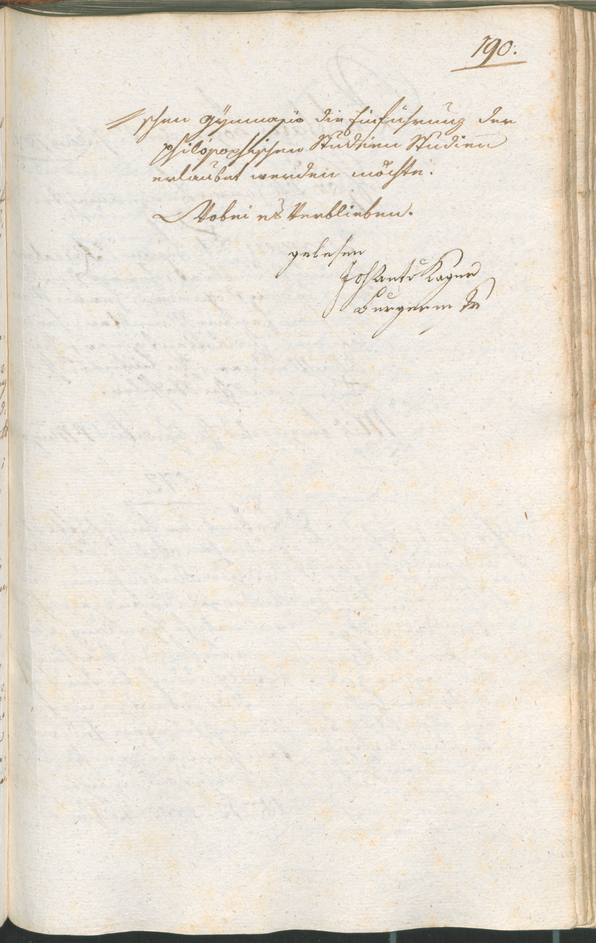 190.
schen Gymnasio die Einführung der
philosophischen Studien Studien
erlaubet werden möchte.
Wobei es Verblieben.
gelesen
Joh Ant Kager
Burgerm